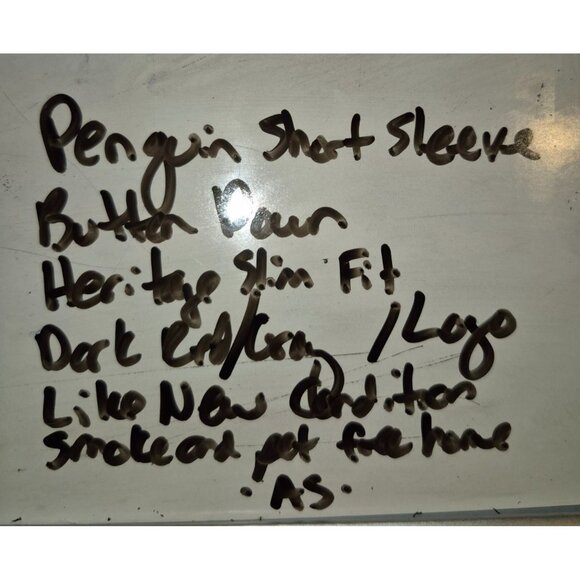 Penguin Short Sleeve
Button Down
Heritage Slim Fit
Dark Red/Gray /Logo
Like New Condition
Smoke and pet free home
·AS·